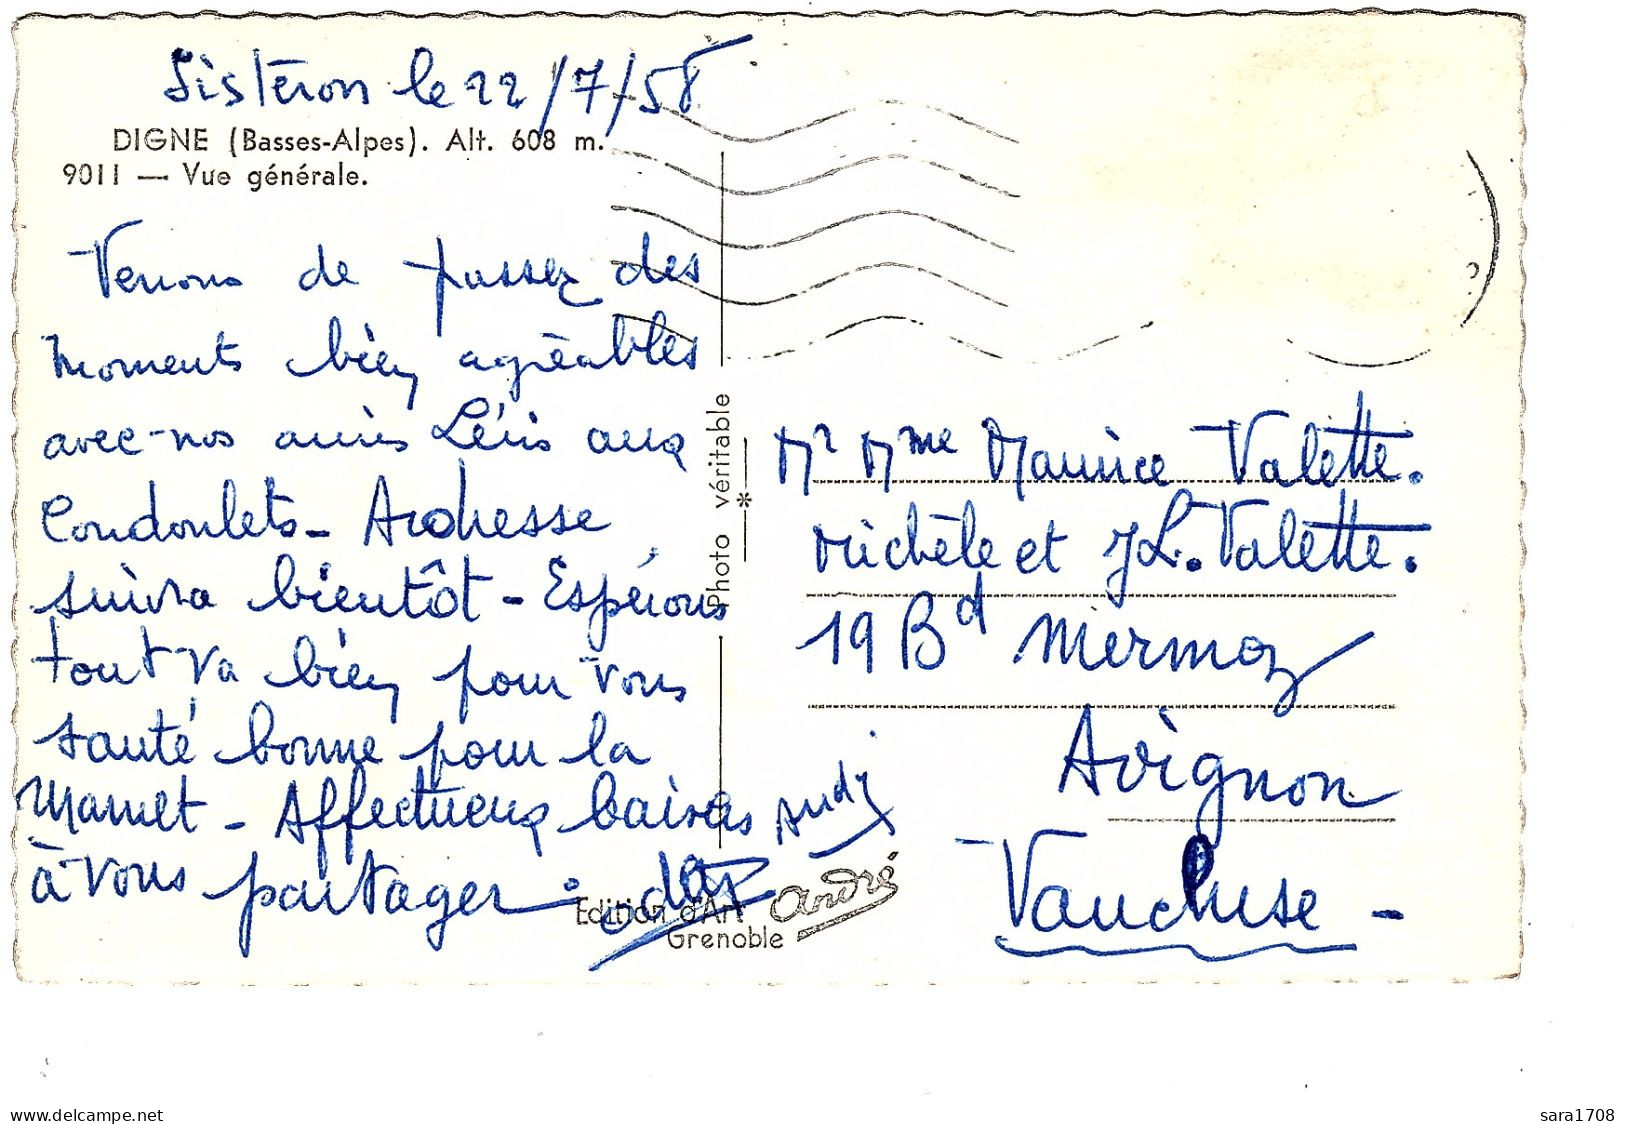 Sistéron le 22/7/58
DIGNE (Basses-Alpes). Alt. 608 m.
9011 — Vue générale.
Venons de passer des
moments bien agréables
avec nos amis Léris aux
Condoulets - Adresse
suivra bientôt - Espérons
tout va bien pour vous
santé bonne pour la
Mamet - Affectueux baisers
à vous partager :
Andy
Photo véritable
Edition d'Art André
Grenoble
Mr Mme Maurice Valette.
Michèle et JL. Valette.
19 Bd Mermoz
Avignon
Vaucluse -
delcampe.net
sara1708